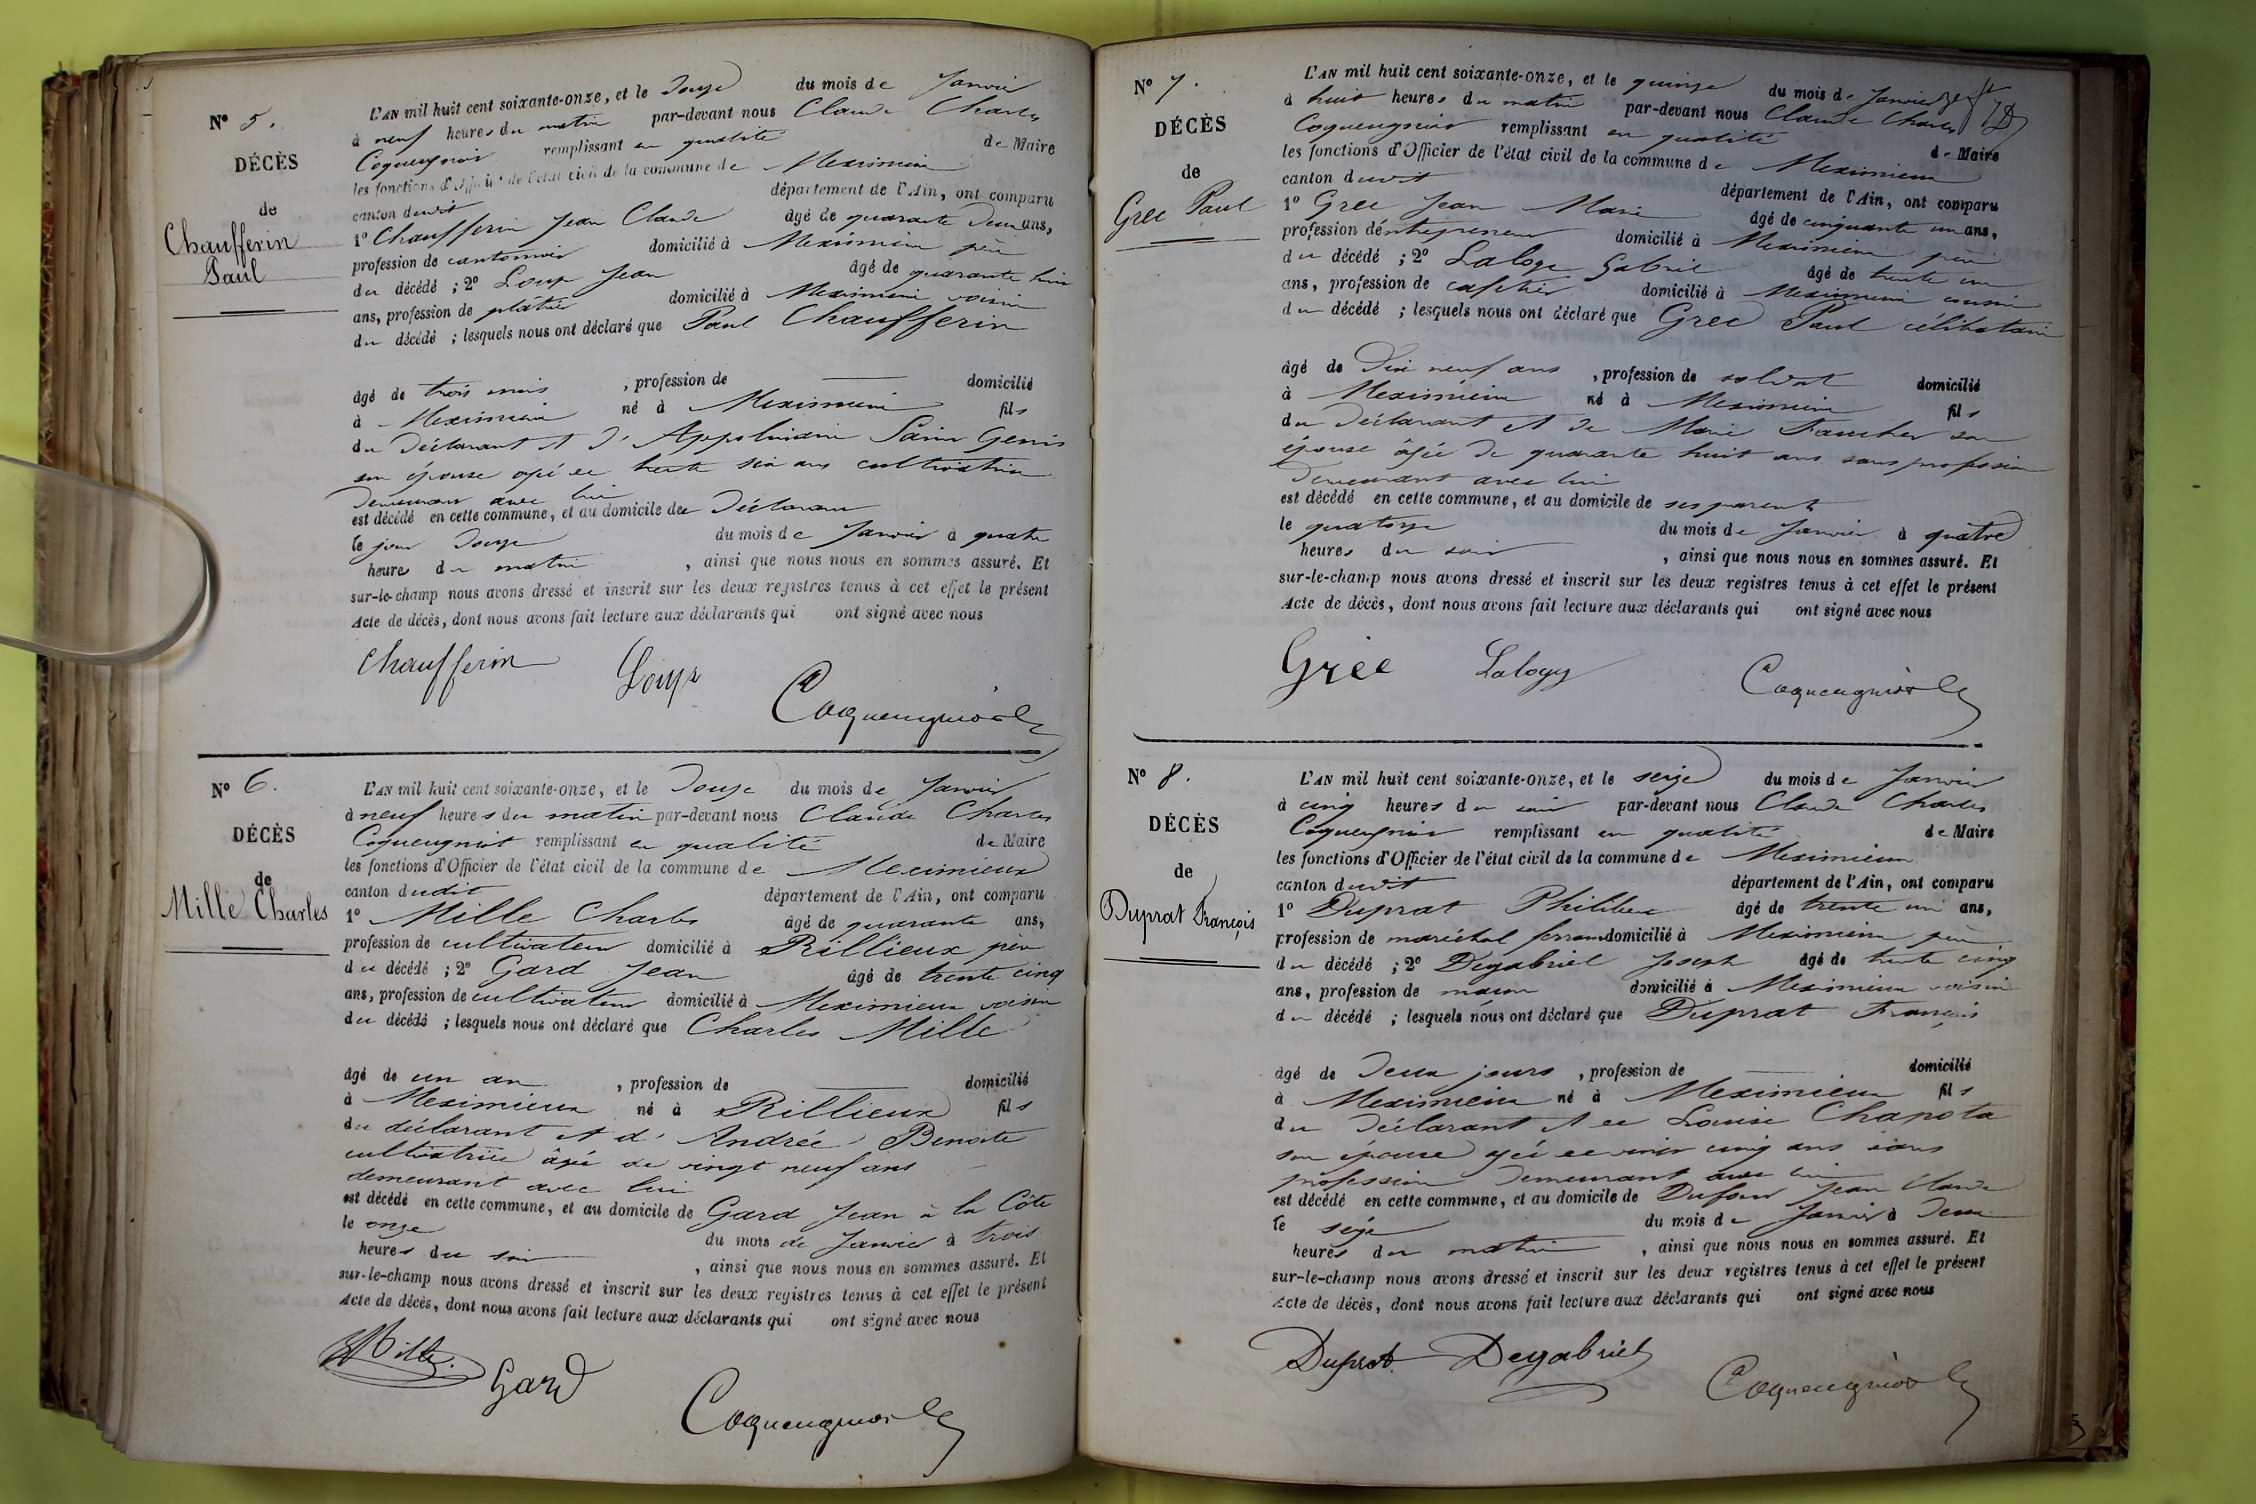 N° 5.
DÉCÈS
de
Chaufferin
Paul
L'AN mil huit cent soixante-onze, et le Douze du mois de Janvier
à neuf heures du matin par-devant nous Claude Charles
Coqueugniot remplissant en qualité de Maire
les fonctions d'Officier de l'état civil de la commune de Meximieux
canton dudit département de l'Ain, ont comparu
1° Chaufferin Jean Claude âgé de quarante Deux ans,
profession de cantonnier domicilié à Meximieux père
du décédé ; 2° Loup Jean âgé de quarante huit
ans, profession de plâtrier domicilié à Meximieux voisin
du décédé ; lesquels nous ont déclaré que Paul Chaufferin
âgé de trois mois , profession de domicilié
à Meximieux né à Meximieux fils
du Déclarant et d' Appolinaire Saint Genis
son épouse agée de trente six ans cultivatrice
Demeurant avec lui
est décédé en cette commune, et au domicile du Déclarant
le jour Douze du mois de Janvier à quatre
heures du matin , ainsi que nous nous en sommes assuré. Et
sur-le-champ nous avons dressé et inscrit sur les deux registres tenus à cet effet le présent
Acte de décès, dont nous avons fait lecture aux déclarants qui ont signé avec nous
Chaufferin Loup
Coqueugniot
N° 6.
DÉCÈS
de
Mille Charles
L'AN mil huit cent soixante-onze, et le Douze du mois de Janvier
à neuf heures du matin par-devant nous Claude Charles
Coqueugniot remplissant en qualité de Maire
les fonctions d'Officier de l'état civil de la commune de Meximieux
canton dudit département de l'Ain, ont comparu
1° Mille Charles âgé de quarante ans,
profession de cultivateur domicilié à Rillieux père
du décédé ; 2° Gard Jean âgé de trente cinq
ans, profession de cultivateur domicilié à Meximieux voisin
du décédé ; lesquels nous ont déclaré que Charles Mille
âgé de un an , profession de domicilié
à Meximieux né à Rillieux fils
du déclarant et d' Andrée Benoite
cultivatrice âgée de vingt neuf ans
demeurant avec lui
est décédé en cette commune, et au domicile de Gard Jean à la Côte
le onze du mois de Janvier à trois
heures du soir , ainsi que nous nous en sommes assuré. Et
sur-le-champ nous avons dressé et inscrit sur les deux registres tenus à cet effet le présent
Acte de décès, dont nous avons fait lecture aux déclarants qui ont signé avec nous
Mille Gard
Coqueugniot
N° 7.
DÉCÈS
de
Grec Paul
L'AN mil huit cent soixante-onze, et le quinze du mois de Janvier
à huit heures du matin par-devant nous Claude Charles
Coqueugniot remplissant en qualité de Maire
les fonctions d'Officier de l'état civil de la commune de Meximieux
canton dudit département de l'Ain, ont comparu
1° Grec Jean Marie âgé de cinquante un ans,
profession d'entrepreneur domicilié à Meximieux père
du décédé ; 2° Laloge Gabriel âgé de trente un
ans, profession de cafetier domicilié à Meximieux cousin
du décédé ; lesquels nous ont déclaré que Grec Paul célibataire
âgé de Dix neuf ans , profession de soldat domicilié
à Meximieux né à Meximieux fils
du Déclarant et de Marie Faucher son
épouse âgée de quarante huit ans sans profession
Demeurant avec lui
est décédé en cette commune, et au domicile de ses parents
le quatorze du mois de Janvier à quatre
heures du soir , ainsi que nous nous en sommes assuré. Et
sur-le-champ nous avons dressé et inscrit sur les deux registres tenus à cet effet le présent
Acte de décès, dont nous avons fait lecture aux déclarants qui ont signé avec nous
Grèc Laloge
Coqueugniot
N° 8.
DÉCÈS
de
Duprat François
L'AN mil huit cent soixante-onze, et le seize du mois de Janvier
à cinq heures du soir par-devant nous Claude Charles
Coqueugniot remplissant en qualité de Maire
les fonctions d'Officier de l'état civil de la commune de Meximieux
canton dudit département de l'Ain, ont comparu
1° Duprat Philibert âgé de trente un ans,
profession de maréchal ferrant domicilié à Meximieux père
du décédé ; 2° Degabriel Joseph âgé de trente cinq
ans, profession de maçon domicilié à Meximieux voisin
du décédé ; lesquels nous ont déclaré que Duprat François
âgé de Deux jours , profession de domicilié
à Meximieux né à Meximieux fils
du Déclarant et de Louise Chapota
son épouse agée de vingt cinq ans sans
profession Demeurant avec lui
est décédé en cette commune, et au domicile de Dufour Jean Claude
le seize du mois de Janvier à Deux
heures du matin , ainsi que nous nous en sommes assuré. Et
sur-le-champ nous avons dressé et inscrit sur les deux registres tenus à cet effet le présent
Acte de décès, dont nous avons fait lecture aux déclarants qui ont signé avec nous
Duprat Degabriel
Coqueugniot